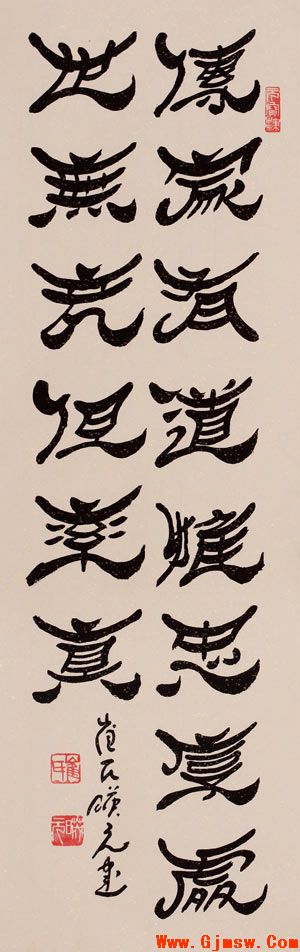 傳家有道惟忠厚處
世無奇但率真
www.Gjmsw.Com